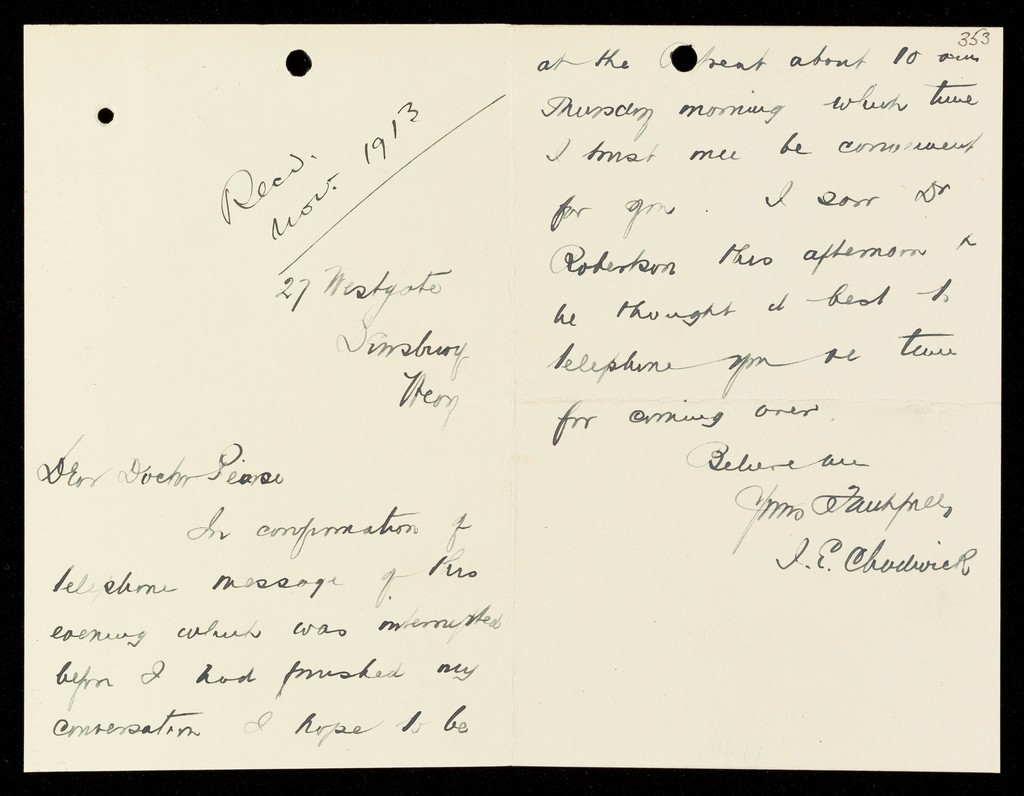 Recd.
Nov. 1913
27 Westgate
Dear Doctor Pierce
In confirmation of
telephone message of this
evening which was interrupted
before I had finished my
conversation I hope to be
353
at the Retreat about 10 am
Thursday morning which time
I trust will be convenient
for you. I saw Dr
Robertson this afternoon &
he thought it best to
telephone you re time
for coming over.
Believe me
Yours Faithfully
J. E. Chadwick